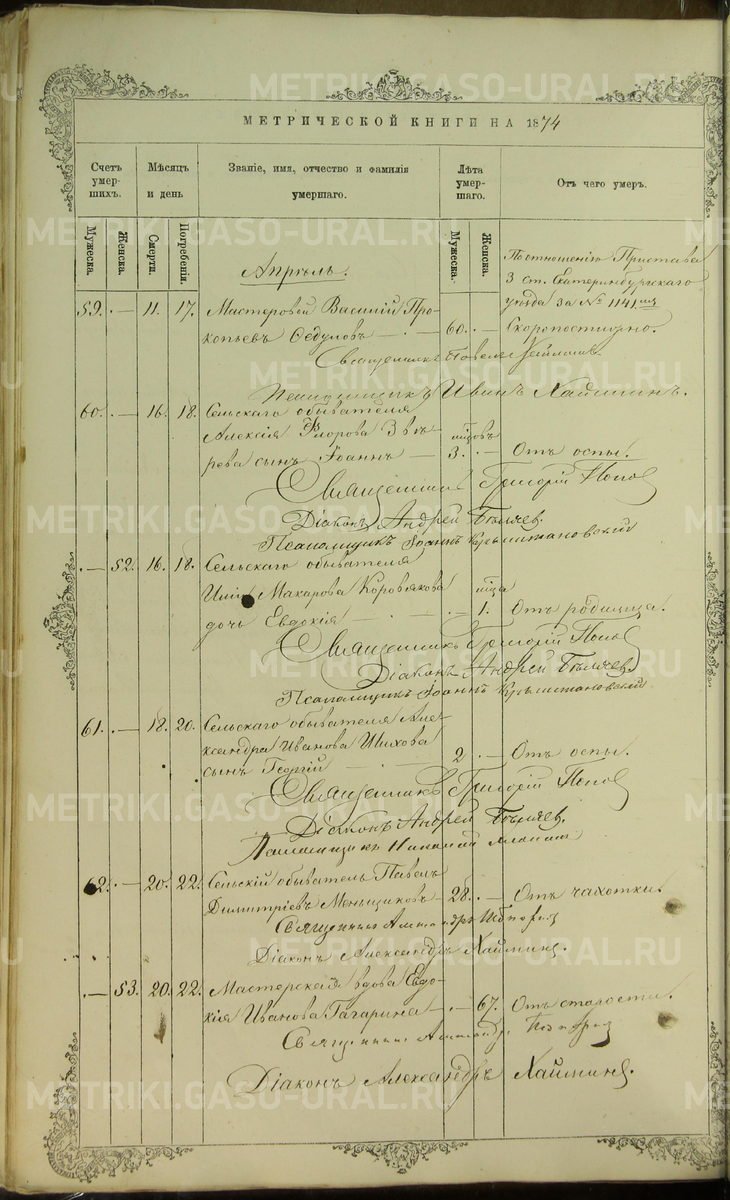 МЕТРИЧЕСКОЙ КНИГИ НА 1874
Счетъ умер-шихъ.
Мѣсяцъ и день
Званіе, имя, отчество и фамилія умершаго.
Лѣта умер-шаго.
Отъ чего умеръ.
Мужеска.
Женска.
Смерти.
Погребенія.
Мужеска.
Женска.
Апрѣль.
По отношенію Пристава
3 ст. Екатеринбургскаго
уѣзда за № 1141
59. — 11. 17. Мастеровой Василій Про-
копьевъ Ѳедуловъ — 60. — Скоропостижно.
Священникъ Павелъ
Псаломщикъ Иванъ Хайминъ.
60. — 16. 18. Сельскаго обывателя
Алексія Флорова Звѣ-
рева сынъ Іоаннъ — 3. — Отъ оспы.
Священникъ Григорій Попов
Діаконъ Андрей
Псаломщикъ Іоаннъ Крыжановскій
— 52. 16. 18. Сельскаго обывателя
Макарова Коровякова
дочь Евдокія — 1. Отъ родимца.
Священникъ Григорій Попов
Діаконъ Андрей
Псаломщикъ Іоаннъ Крыжановскій
61. — 18. 20. Сельскаго обывателя Але-
ксандра Иванова Шихова
сынъ Георгій — 2. — Отъ оспы.
Священникъ Григорій Попов
Діаконъ Андрей
62. — 20. 22. Сельскій обыватель Павелъ
Димитріевъ Меньщиковъ — 28. — Отъ чахотки.
Священникъ
Діаконъ Александръ Хайминъ.
— 53. 20. 22. Мастерская вдова Евдо-
кія Иванова Гагарина — 67. Отъ старости.
Священникъ
Діаконъ Александръ Хайминъ.
METRIKI.GASO-URAL.RU